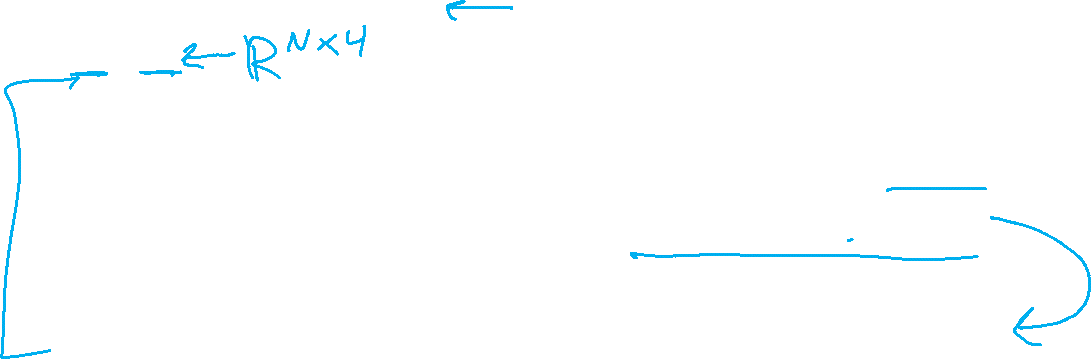 ℝ^{N×4}